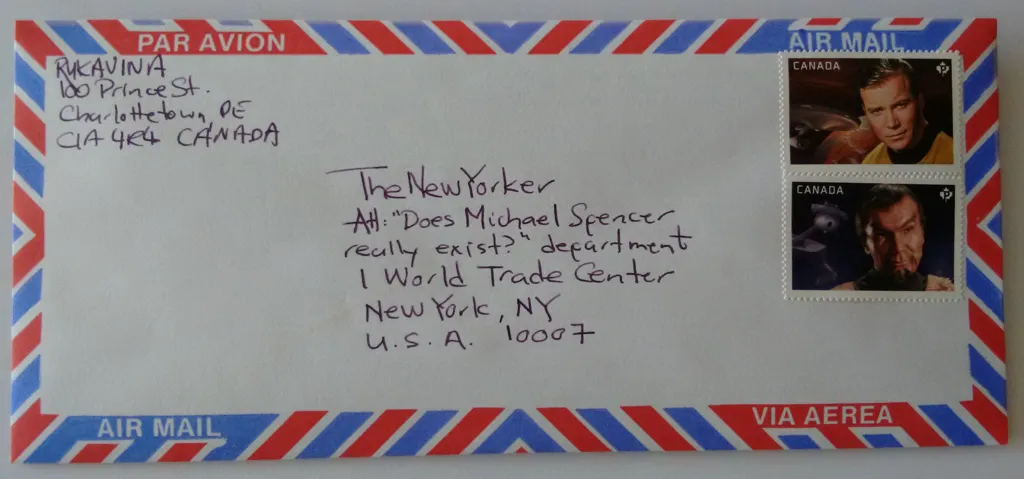 PAR AVION
AIR MAIL
RUKAVINA
100 Prince St.
Charlottetown, PE
C1A 4R4 CANADA
CANADA
P
The New Yorker
Att: "Does Michael Spencer
really exist?" department
1 World Trade Center
New York, NY
U.S.A. 10007
CANADA
P
AIR MAIL
VIA AEREA